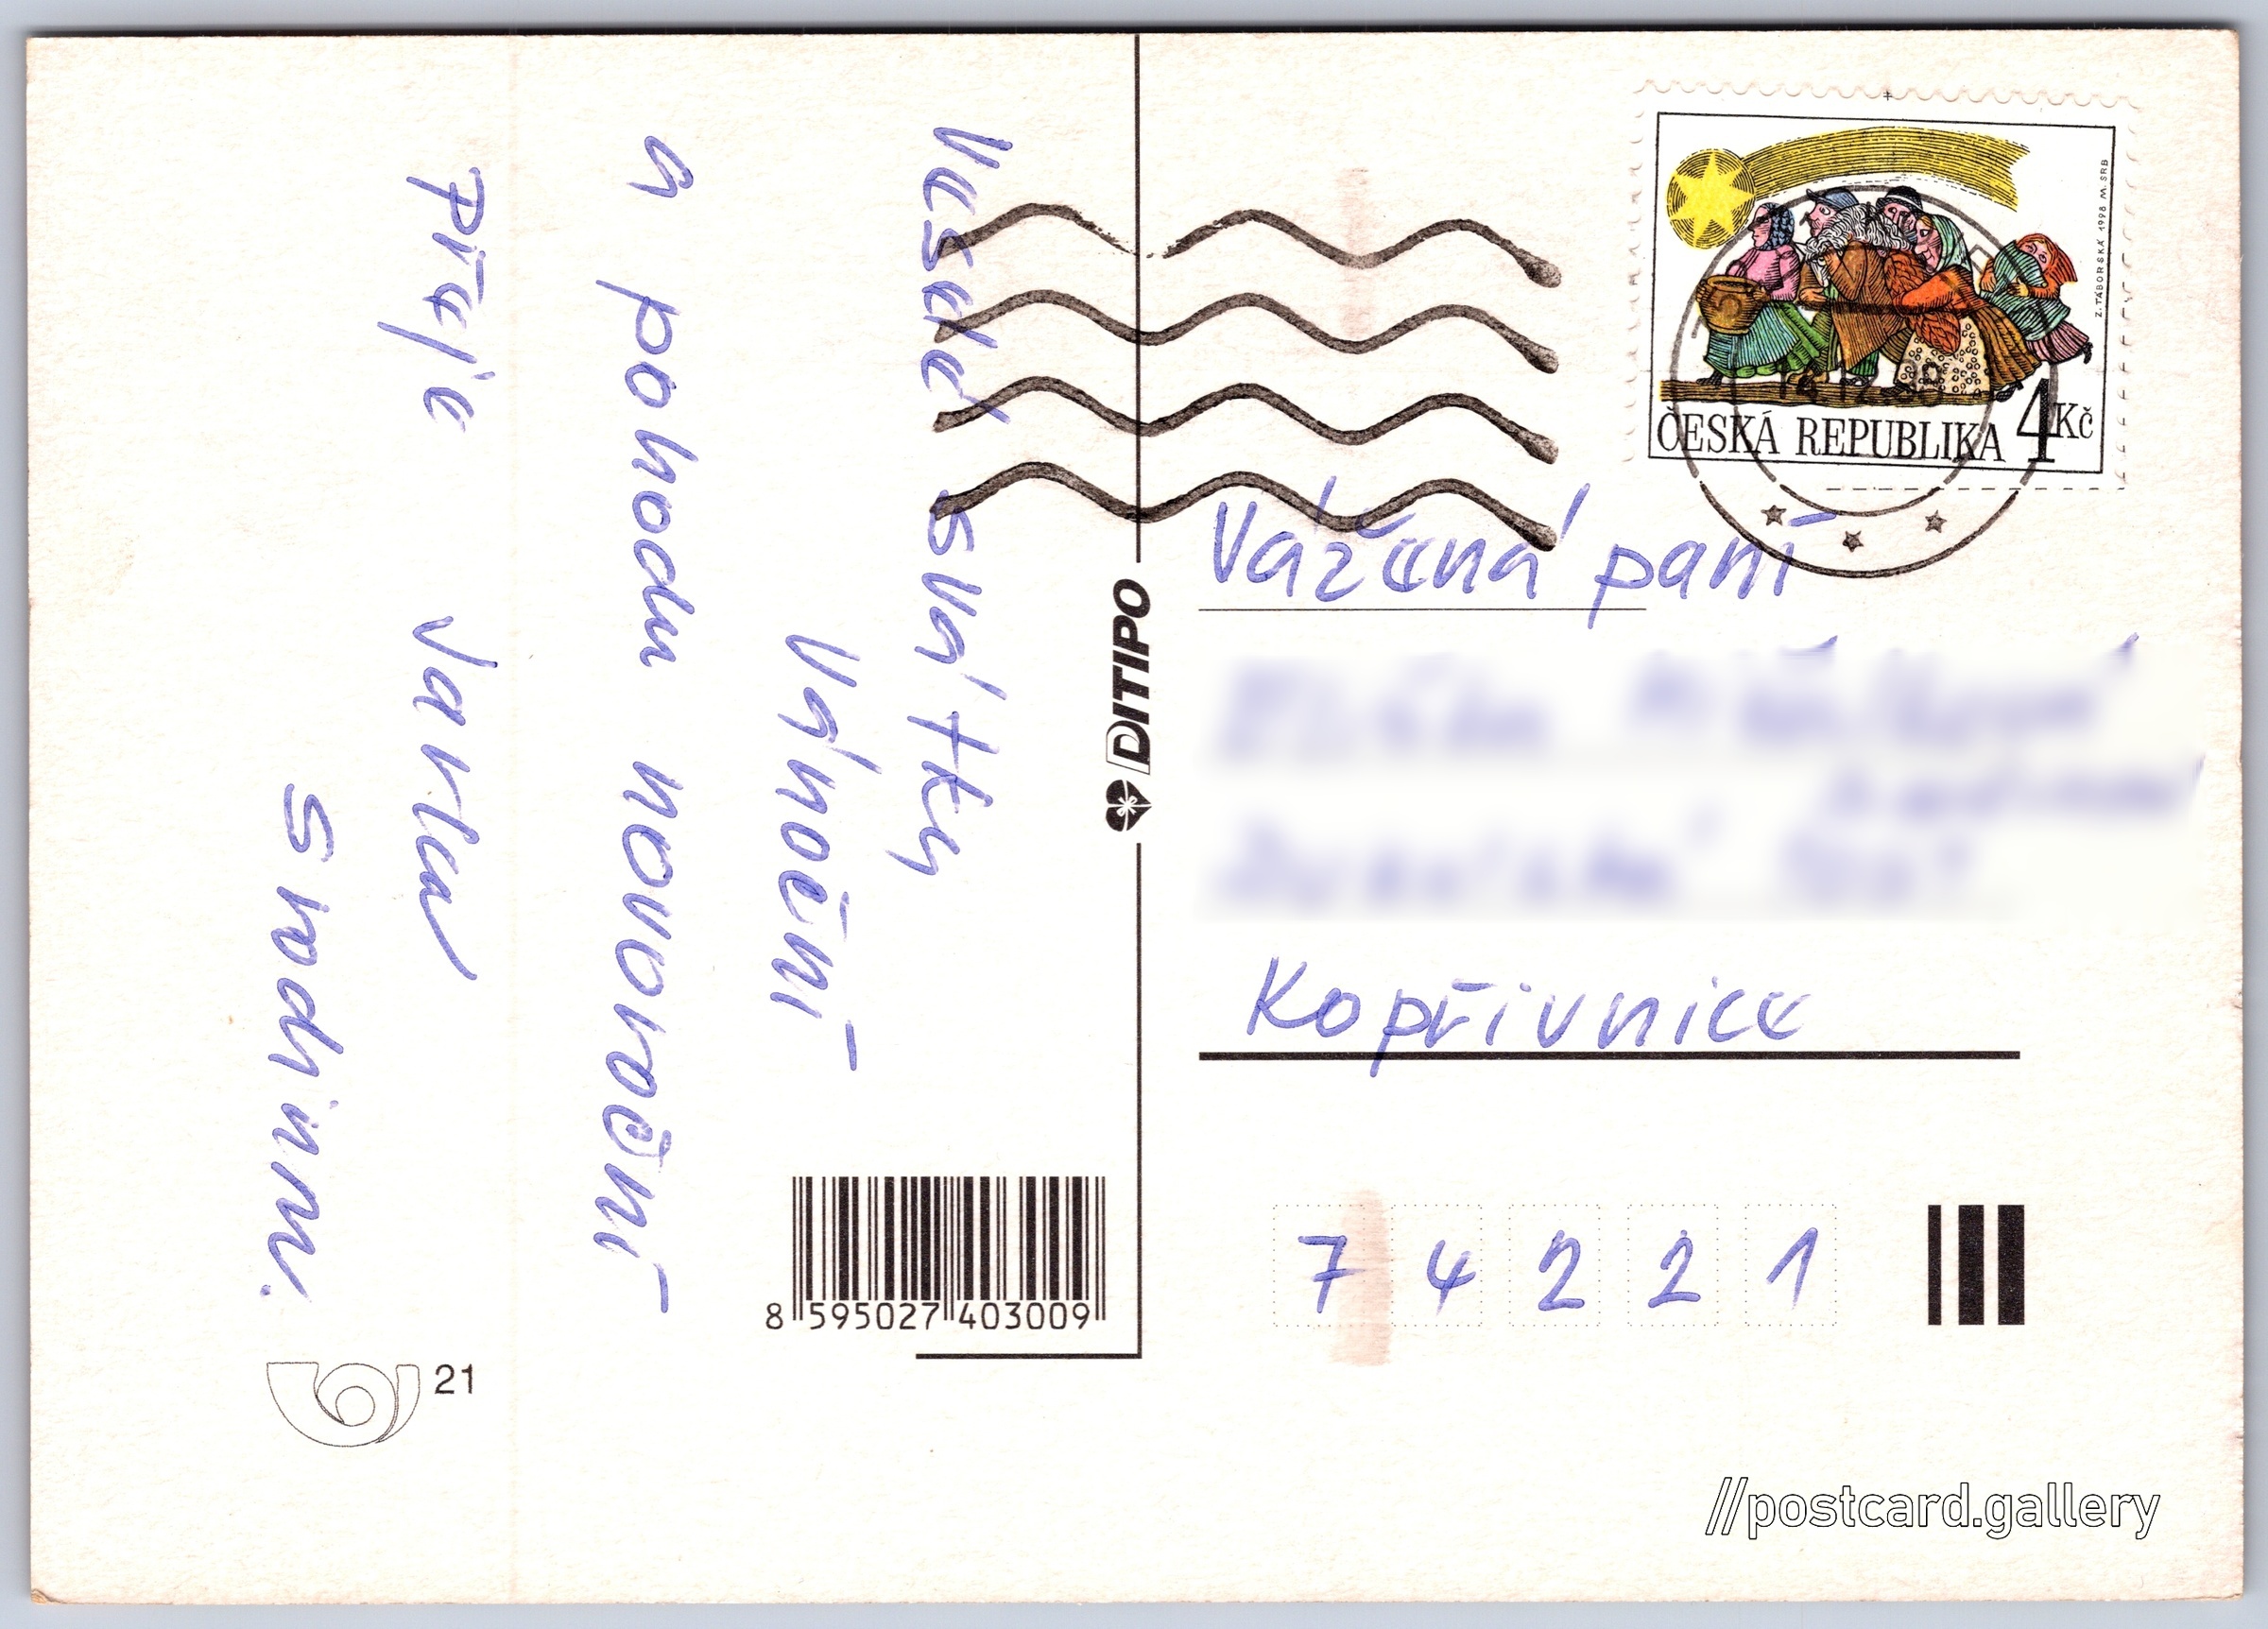 Veselé svátky
Vánoční
a pohodu novoroční
Přeje
s rodinou.
DITIPO
8 595027 403009
21
Z. TÁBORSKÁ 1998 M. SRB
ČESKÁ REPUBLIKA 4Kč
Vážená paní
Kopřivnice
7 4 2 2 1
//postcard.gallery